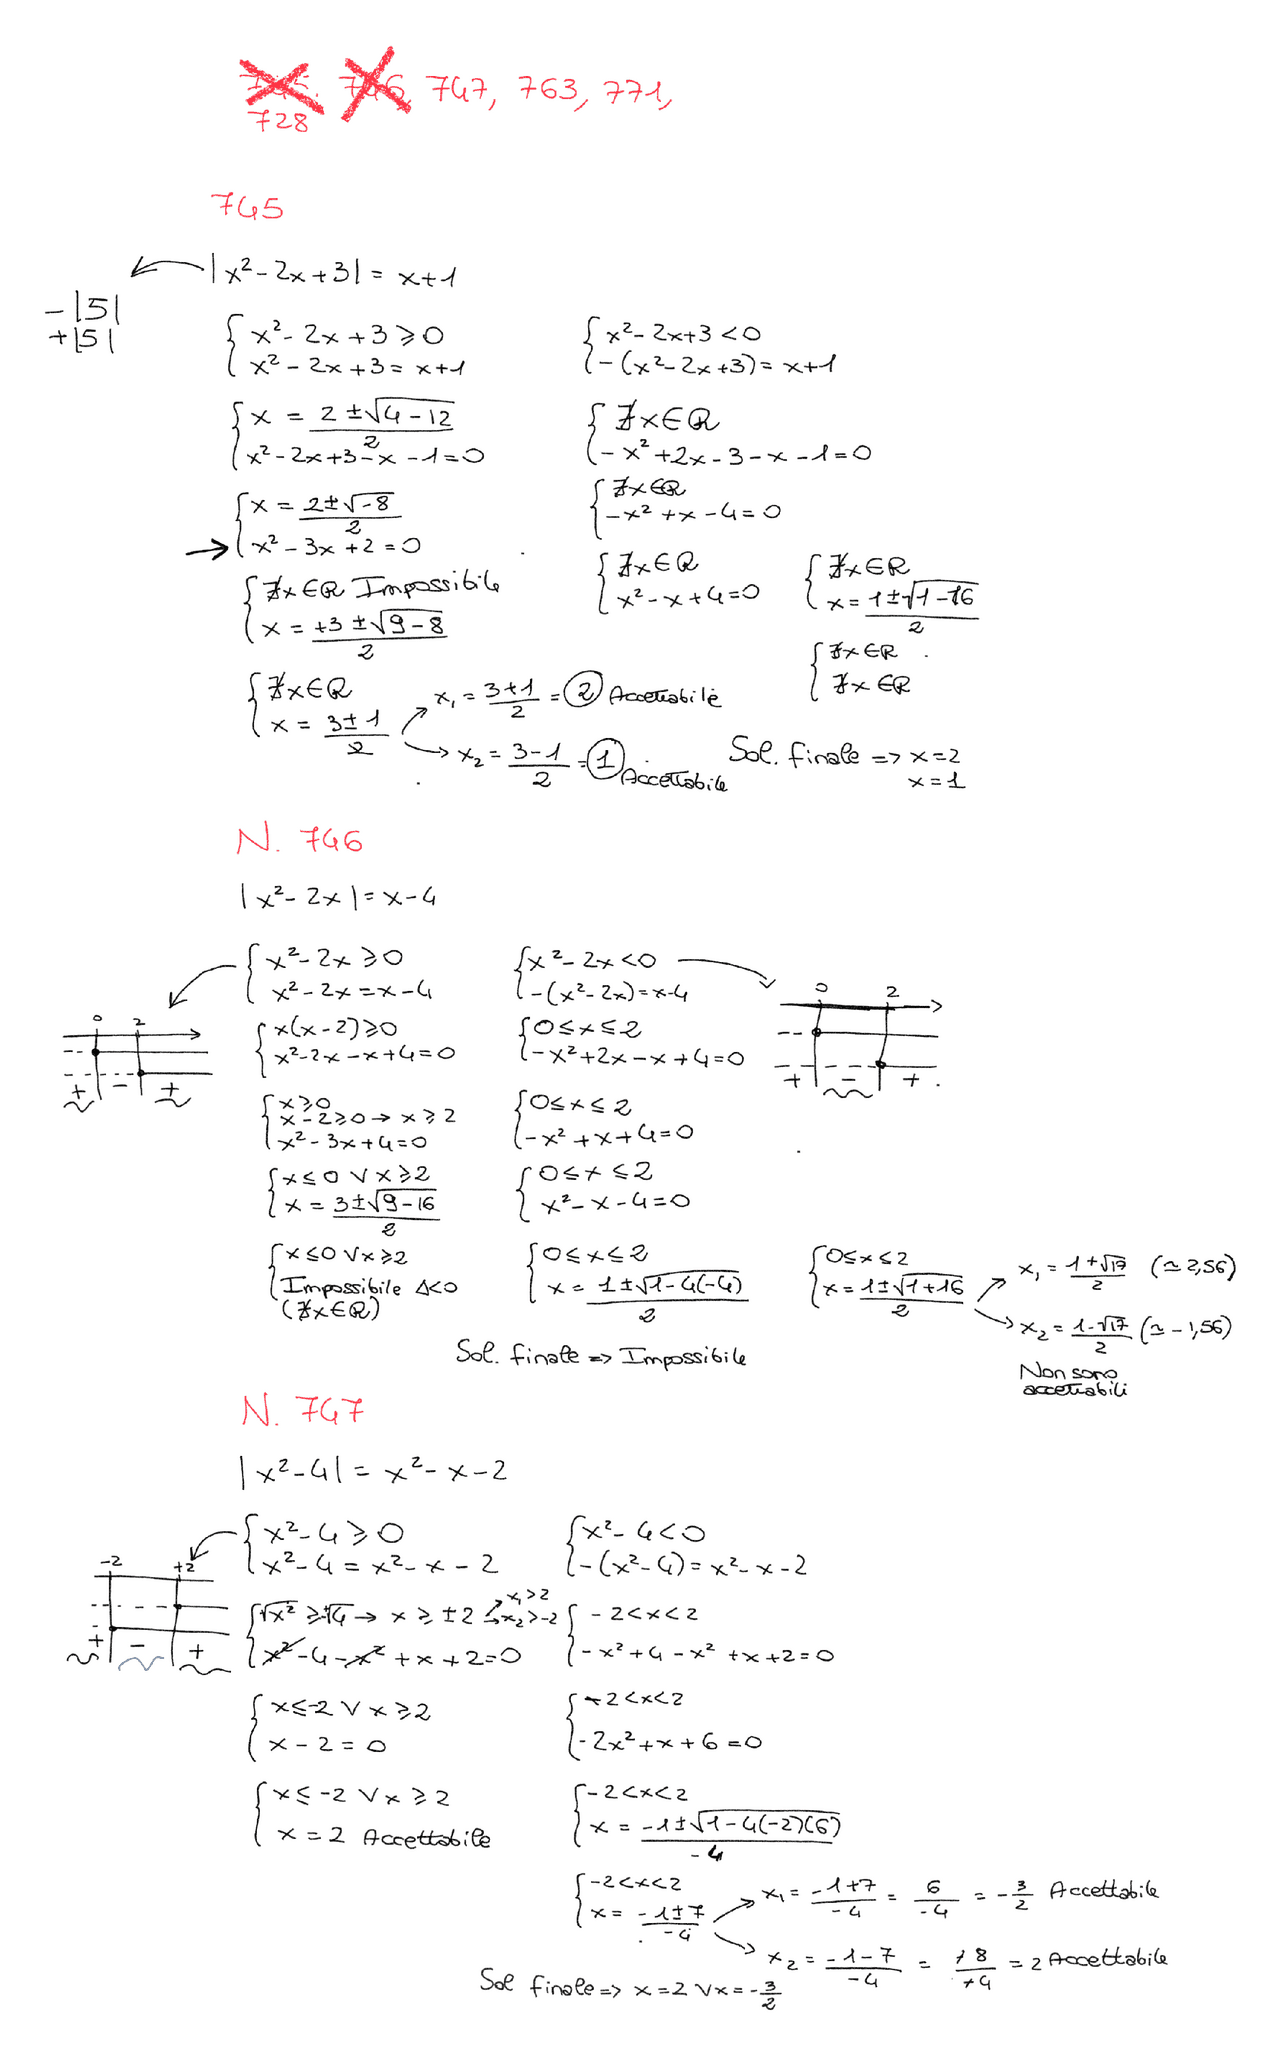 745. 746, 747, 763, 771,
728
745
|x²-2x+3| = x+1
-|5|
+|5|
{ x²-2x+3 ⩾ 0
{ x²-2x+3 = x+1
{ x²-2x+3 < 0
{ -(x²-2x+3) = x+1
{ x = (2±√(4-12))/2
{ x²-2x+3-x-1=0
{ ∄x∈ℝ
{ -x²+2x-3-x-1=0
{ x = (2±√-8)/2
{ x²-3x+2=0
{ ∄x∈ℝ
{ -x²+x-4=0
{ ∄x∈ℝ Impossibile
{ x = (+3±√(9-8))/2
{ ∄x∈ℝ
{ x²-x+4=0
{ ∄x∈ℝ
{ x = (1±√(1-16))/2
{ ∄x∈ℝ
{ ∄x∈ℝ
{ ∄x∈ℝ
{ x = (3±1)/2
x₁ = (3+1)/2 = 2 Accettabile
x₂ = (3-1)/2 = 1 Accettabile
Sol. finale => x=2
x=1
N. 746
|x²-2x| = x-4
{ x²-2x ⩾ 0
{ x²-2x = x-4
{ x²-2x < 0
{ -(x²-2x) = x-4
0 2
+ - +
0 2
+ - +
{ x(x-2) ⩾ 0
{ x²-2x-x+4=0
{ 0≤x≤2
{ -x²+2x-x+4=0
{ x⩾0
x-2⩾0 → x⩾2
{ x²-3x+4=0
{ 0≤x≤2
{ -x²+x+4=0
{ x≤0 ∨ x⩾2
{ x = (3±√(9-16))/2
{ 0≤x≤2
{ x²-x-4=0
{ x≤0 ∨ x⩾2
{ Impossibile Δ<0
(∄x∈ℝ)
{ 0≤x≤2
{ x = (1±√(1-4(-4)))/2
{ 0≤x≤2
{ x = (1±√(1+16))/2
x₁ = (1+√17)/2 (≃2,56)
x₂ = (1-√17)/2 (≃-1,56)
Non sono
accettabili
Sol. finale => Impossibile
N. 747
|x²-4| = x²-x-2
{ x²-4 ⩾ 0
{ x²-4 = x²-x-2
{ x²-4 < 0
{ -(x²-4) = x²-x-2
-2 +2
+ - +
{ √x² ⩾ ±√4 → x ⩾ ±2 x₁>2
x₂>-2
{ x²-4-x²+x+2=0
{ -2<x<2
{ -x²+4-x²+x+2=0
{ x≤-2 ∨ x⩾2
{ x-2=0
{ -2<x<2
{ -2x²+x+6=0
{ x≤-2 ∨ x⩾2
{ x=2 Accettabile
{ -2<x<2
{ x = (-1±√(1-4(-2)(6)))/-4
{ -2<x<2
{ x = (-1±7)/-4
x₁ = (-1+7)/-4 = 6/-4 = -3/2 Accettabile
x₂ = (-1-7)/-4 = +8/+4 = 2 Accettabile
Sol finale => x=2 ∨ x=-3/2